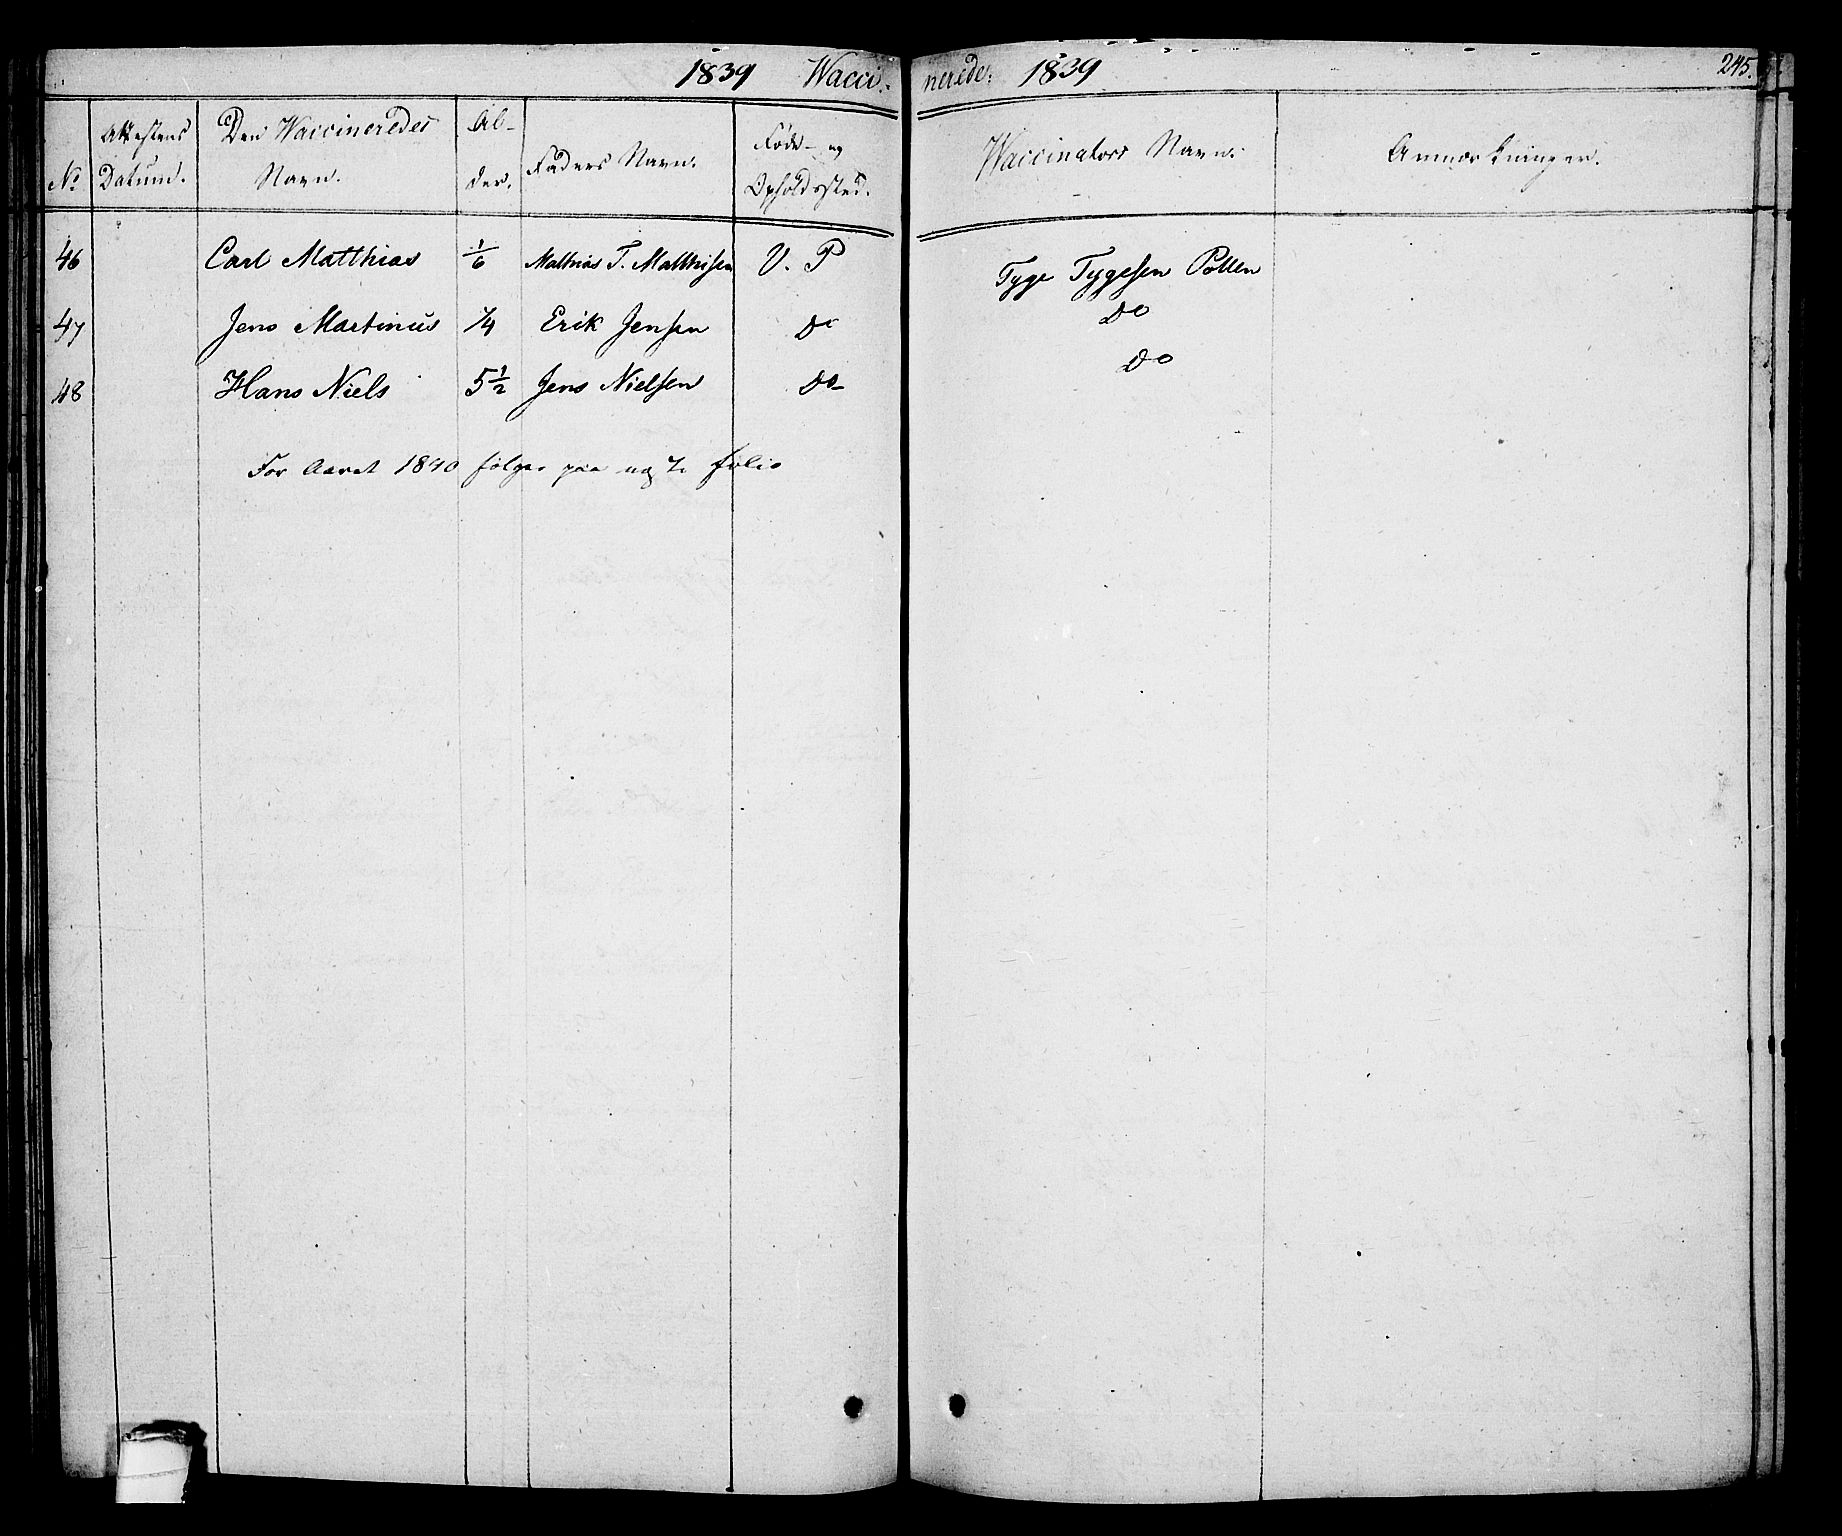 1839 Wacci-
nerede. 1839
245.
No
Attestens
Datum.
Den Waccineredes
Navn.
Al-
der.
Faders Navn.
Føde- og
Opholdssted.
Waccinators Navn.
Anmærkninger.
46 Carl Matthias 1/6 Mathias T. Matthisen V. P Tyge Tygesen Pollen
47 Jens Martinus 1/4 Erik Jensen Do Do
48 Hans Niels 5 1/2 Jens Nielsen Do Do
For Aaret 1840 følger paa folio